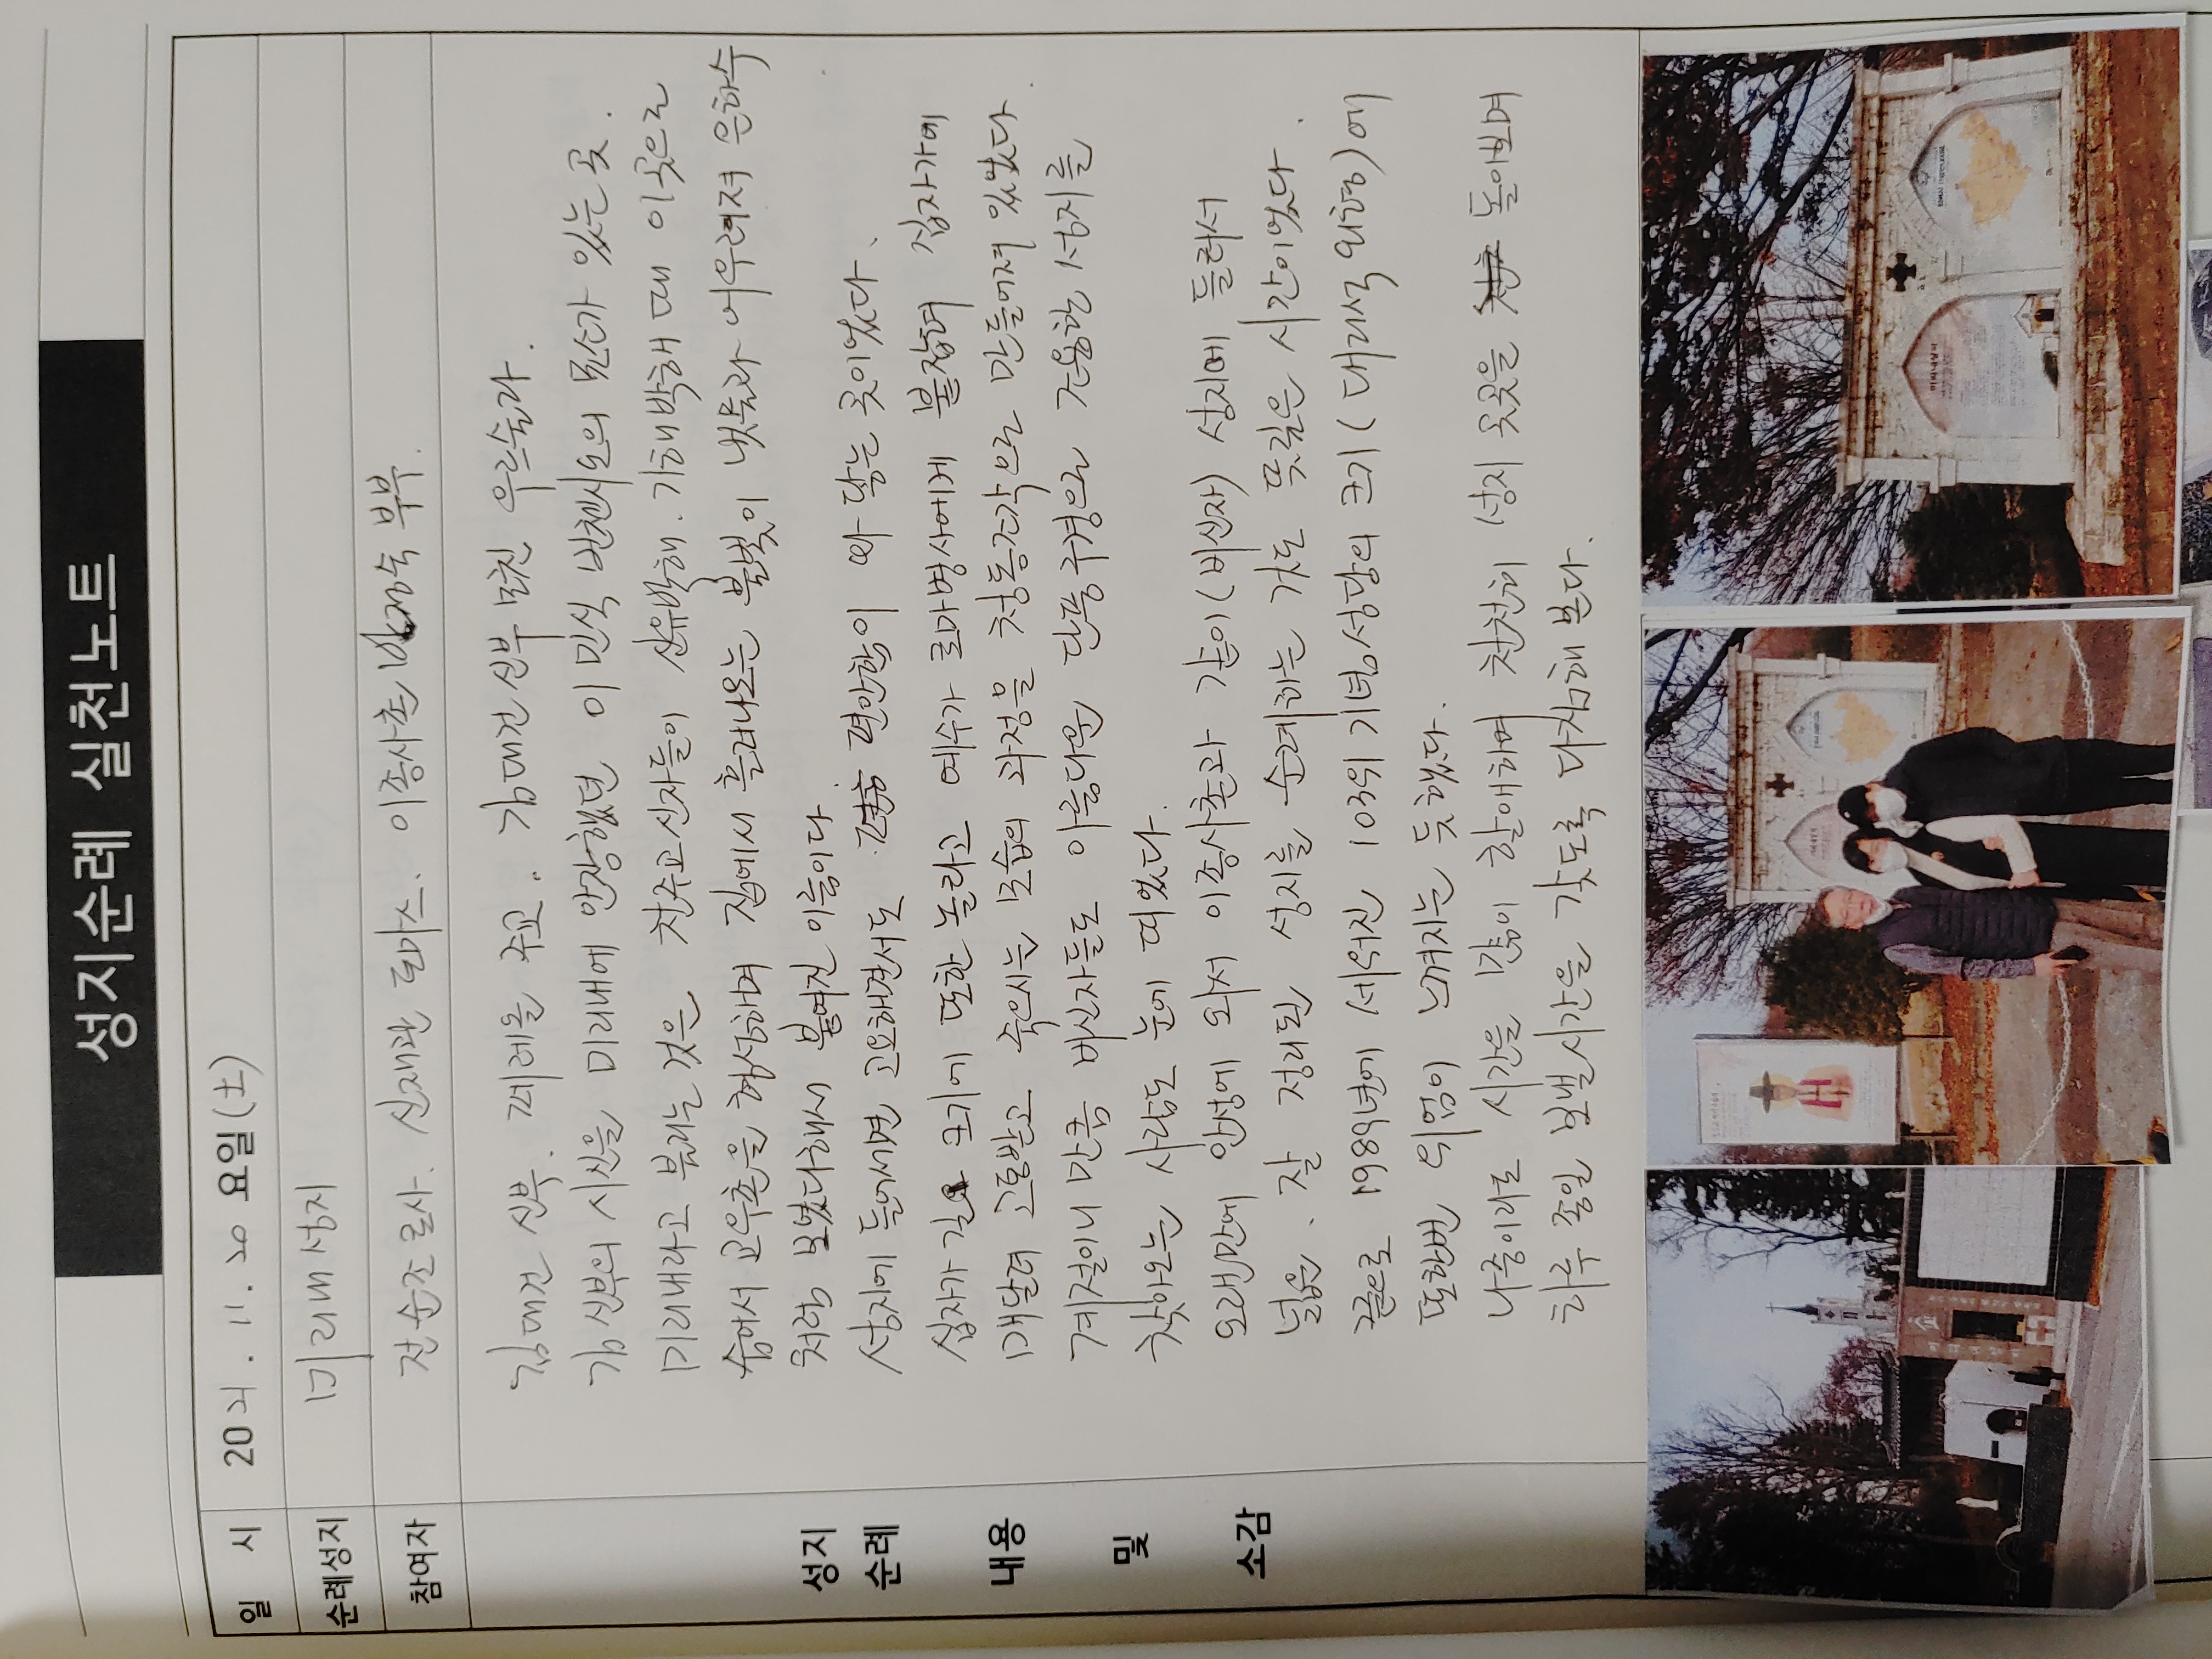 성지순례 실천노트
일 시 2021. 11. 20 요일(土)
순례성지 미리내 성지
참여자 전순조 로사. 신재관 토마스. 이종사촌 부부.
성지
순례
내용
및
소감
김대건 신부. 페레올 주교. 김대건 신부 모친 우르술라.
김 신부의 시신을 미리내에 안장했던 이민식 빈첸시오의 묘소가 있는 곳.
미리내라고 불리는 것은 천주교 신자들이 신유박해. 기해박해 때 이 곳으로
숨어서 교우촌을 형성하며 집에서 흘러나오는 불빛이 냇물과 어우러져 은하수
처럼 보였다해서 붙여진 이름이다.
성지에 들어서면 고요해면서도 편안함이 와 닿는 곳이었다.
십자가 길 크기에 또한 놀라고 예수가 로마병사에게 붙잡혀 십자가에
매달려 고통받고 죽으시는 모습의 과정을 청동조각으로 만들어져 있었다.
계절이니 만큼 비신자들도 아름다운 단풍구경으로 조용한 성지를
찾아오는 사람도 눈에 띄었다.
오래만에 안성에 와서 이종사촌과 같이(비신자) 성지에 들려서
넓은. 잘 정리된 성지를 순례하는 것도 뜻깊은 시간이었다.
끝으로 1989년에 세워진 103위 기념성당의 크기(대리석 외형)에
또한번 위엄이 느껴지는 듯 했다.
나중이라도 시간을 많이 할애하며 천천히 성지 곳곳을 돌아보며
하루 종일 보낼시간을 갖도록 다짐해 본다.